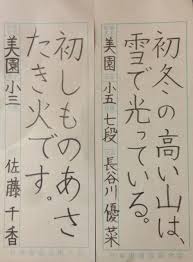 初冬の高い山は、
雪で光っている。
美園 小五 七段 長谷川優菜
初しものあさ
たき火です。
美園 小三 佐藤千香